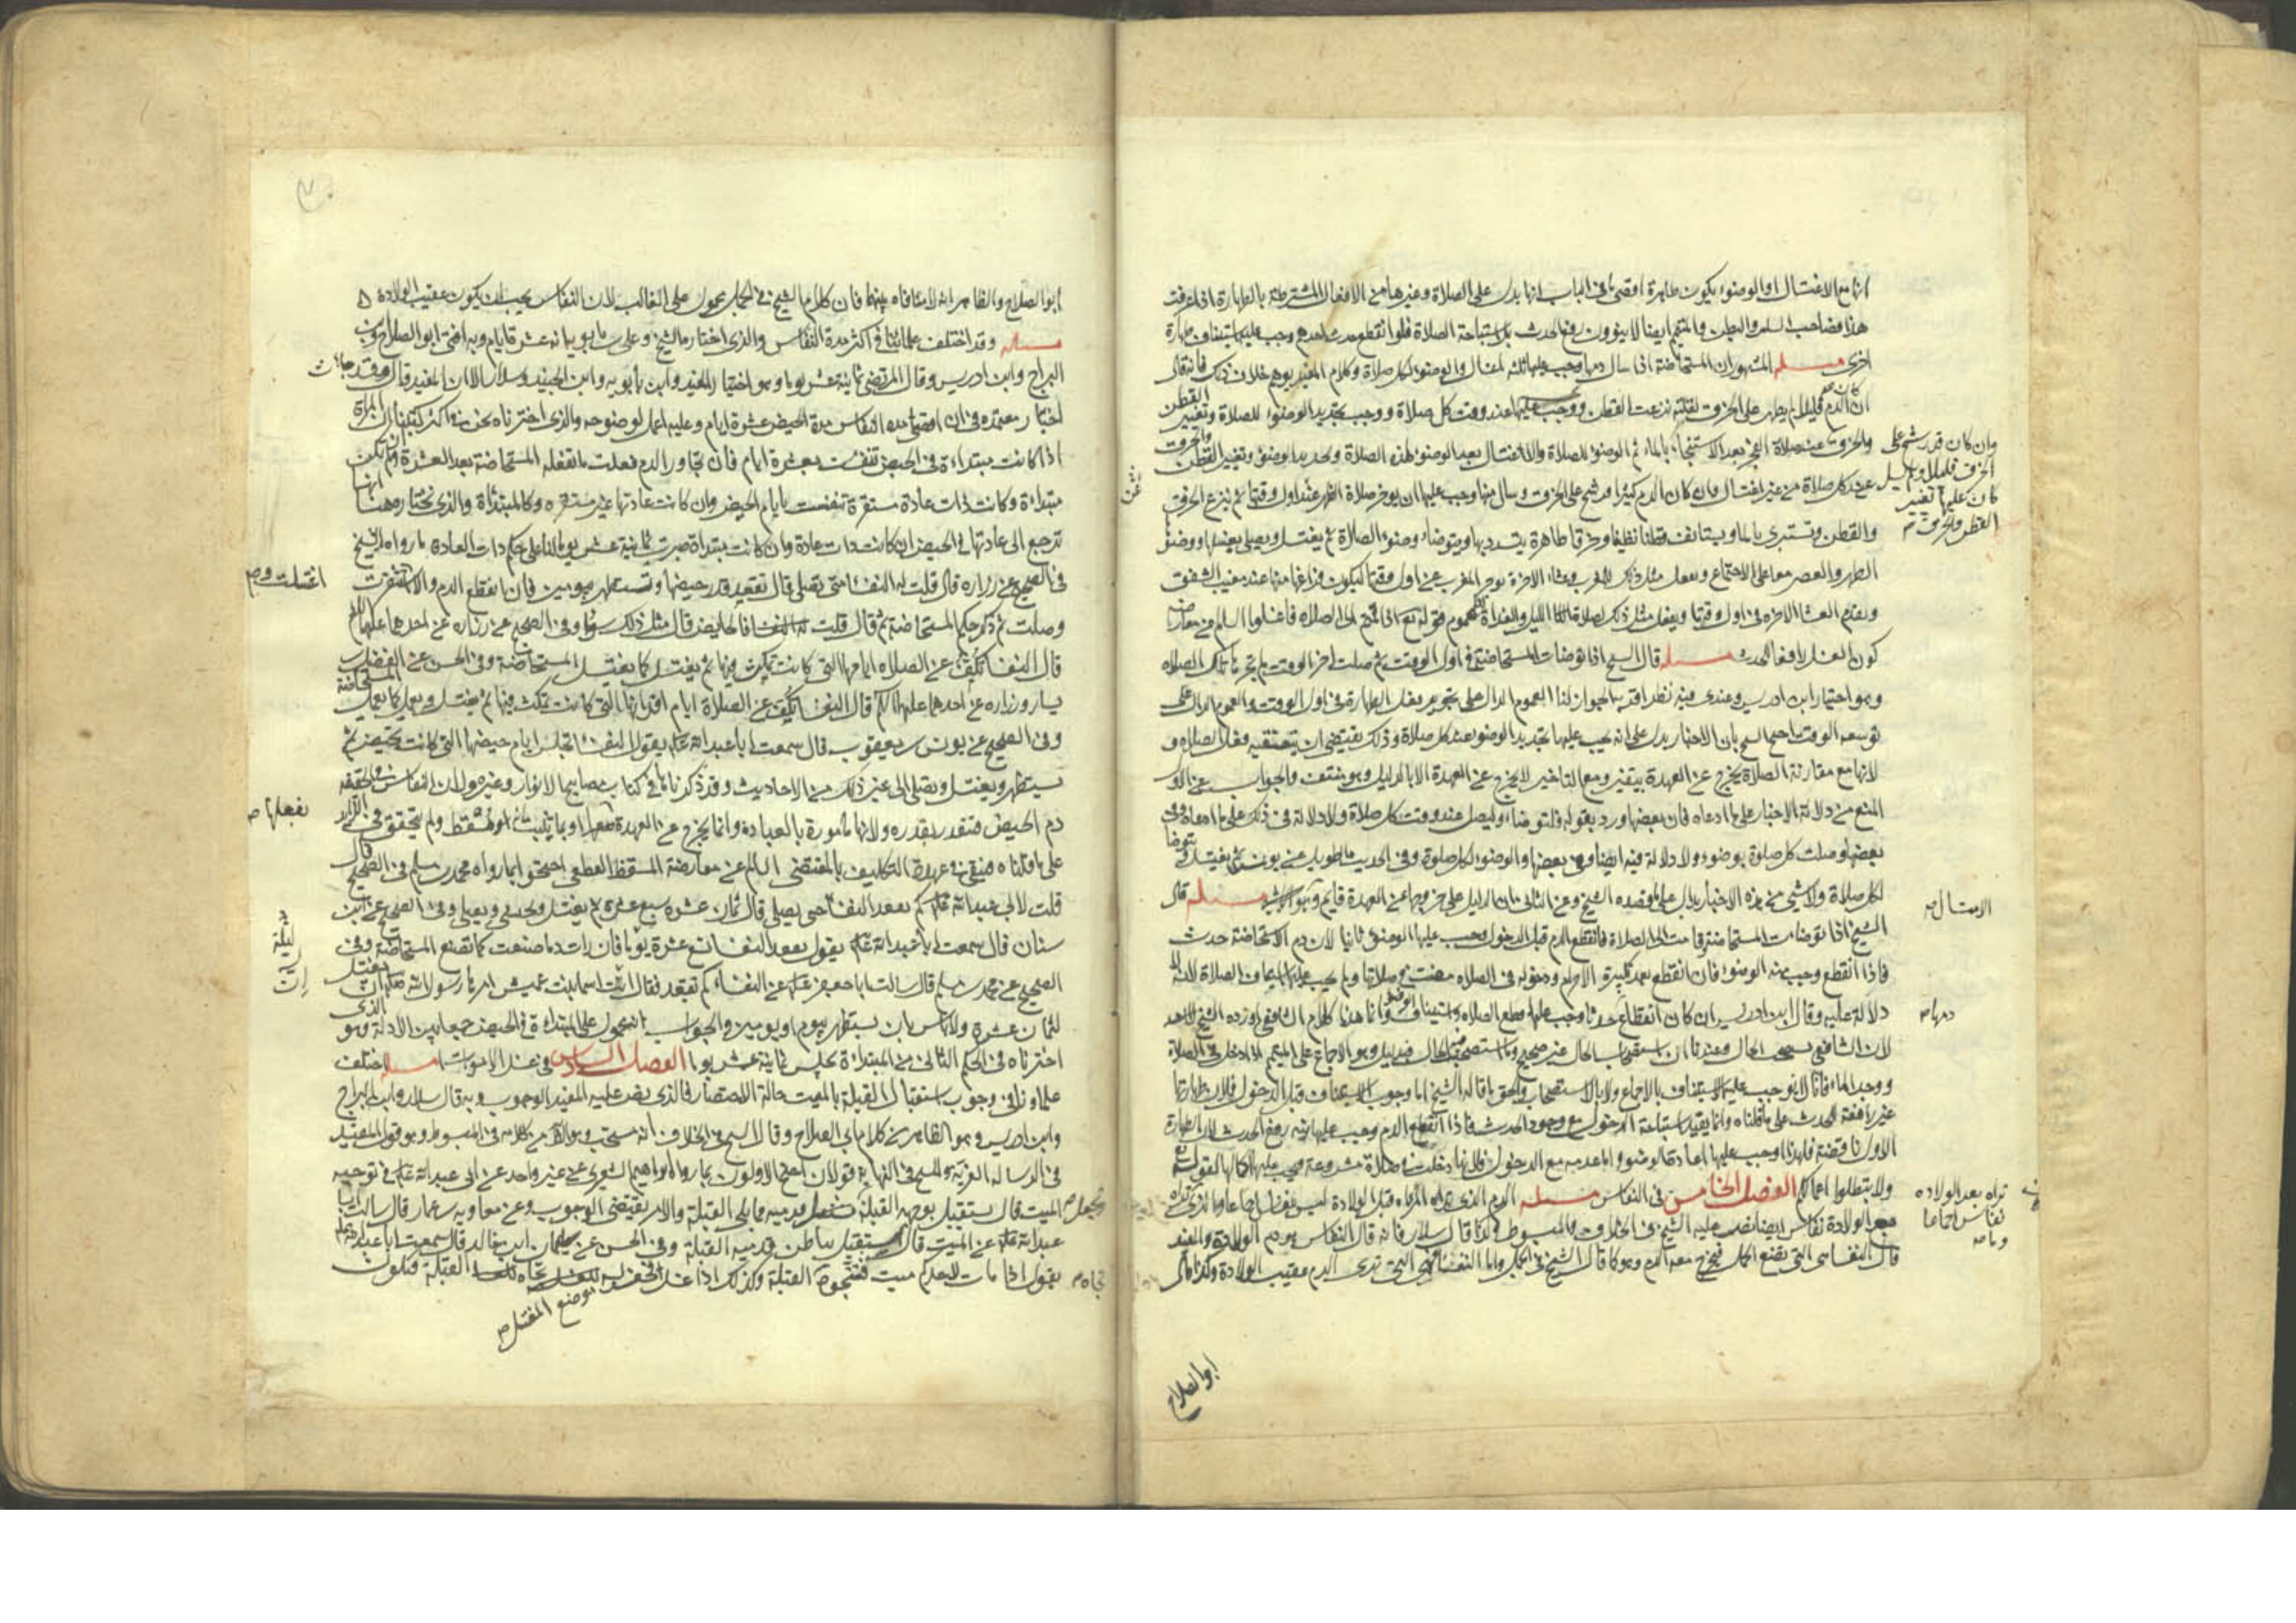 انها مع الاغتسال او الوضوء يكون طاهرة اقصى ما فى الباب انها يدل على الصلاة وغيرها من الافعال المشترطة بالطهارة اذا عرفت
هذا فصاحب السلس والبطن والمتيمم ايضا لا ينوون رفع الحدث بل استباحة الصلاة فلو انقطع حدث احدهم وجب عليه استيناف طهارة
اخرى مسئله المشهور ان المستحاضة اذا سال دمها وجب عليها ثلثة اغسال والوضوء لكل صلاة وكلام المفيد يوهم خلاف ذلك فانه قال
ان كان الدم قليلا لم يظهر على الخرق لقلته نزعت القطن ووجب عليها عند وقت كل صلاة ووجب تجديد الوضوء للصلاة وتغيير القطن
والخرق عند صلاة الفجر بعد الاستنجاء بالماء ثم الوضوء للصلاة والاغتسال بعد الوضوء لهذه الصلاة وتجديد الوضوء وتغيير القطن والخرق
عند كل صلاة من غير اغتسال فان كان الدم كثيرا فرشح على الخرق وسال منها وجب عليها ان يوخر صلاة الظهر عن اول وقتها ثم ينزع الخرق
والقطن وتستبرى بالماء ويستانف قطنا نظيفا وخرقا طاهرة يتشدد بها ويتوضاء وضوء الصلاة ثم يغتسل ويصلى بغسلها ووضوئها
الظهر والعصر معا على الاجتماع ويفعل مثل ذلك للمغرب وعشاء الاخرة يوخر المغرب عن اول وقتها ليكون فراغها منها عند مغيب الشفق
ويقدم العشاء الاخرة فى اول وقتها ويفعل مثل ذلك لصلاة الليل والغداة لنا عموم قوله تع اذا قمتم الى الصلاة فاغسلوا السالم عن معارضة
كون الغسل رافعا للحدث مسئله قال الشيخ اذا توضات المستحاضة فى اول الوقت ثم صلت اخر الوقت لم تجزها تلك الصلاه
وهو اختيار ابن ادريس وعندى فيه نظر اقربه الجواز لنا العموم الدال على تجويز فعل الطهارة فى اول الوقت والعموم الدال على
توسعه الوقت احتج الشيخ بان الاخبار يدل على انه يجب عليها تجديد الوضوء عند كل صلاة وذلك يقتضى ان يتعقبه فعل الصلاة و
لانها مع مقارنة الصلاة يخرج عن العهدة بيقين ومع التاخير لا يخرج عن العهدة الا بالدليل وهو منتف والجواب عن الاول
المنع من دلالة الاخبار على ما ادعاه فان بعضها ورد بقوله فلتوضاء وليصل عند وقت كل صلاة ولا دلالة فى ذلك على ما ادعاه وفى
بعضها وصلت كل صلوة بوضوء ولا دلالة فيه ايضا وفى بعضها والوضوء لكل صلوة وفى الحديث الطويل عن يونس تتوضا ثم يغتسل
لكل صلاة ولا شىء من هذه الاخبار يدل على ما قصده الشيخ وعن الثانى بان الدليل على خروجها عن العهدة قايم وهو الامتثال مسئله قال
الشيخ اذا توضات المستحاضة وقامت الى الصلاة فانقطع الدم قبل الدخول وجب عليها الوضوء ثانيا لان دم الاستحاضة حدث
فاذا انقطع وجب منه الوضوء فان انقطع بعد تكبيرة الاحرام ودخوله فى الصلاه مضت فى صلاتها ولم يجب عليها استيناف الصلاة لانه لا
دلالة عليه وقال ابن ادريس ان كان انقطاع دمها حدثا وجب عليها قطع الصلاه واستيناف الوضوء وانما هذا كلام الشافعى اورده الشيخ
لان الشافعى يستصحب الحال وعندنا ان استصحاب الحال غير صحيح وما استصحب فيه الحال فبدليل وهو الاجماع على المتيمم اذا دخل فى الصلاة
ووجد الماء فانا لا نوجب عليه الاستيناف بالاجماع ولا بالاستصحاب والحق ما قاله الشيخ اما وجوب الاستيناف قبل الدخول فلان طهارتها
غير رافعة للحدث على ما قلناه وانما يفيد استباحة الدخول مع وجود الحدث فاذا انقطع الدم وجب عليها نية رفع الحدث لان الطهارة
الاولى ناقصة فلهذا اوجب عليها اعادة الوضوء واما عدمه مع الدخول فلانها دخلت فى صلاة مشروعة فيجب عليها اكمالها لقوله تع
ولا تبطلوا اعمالكم الفصل الخامس فى النفاس مسئله الدم الذى تراه المراه قبل الولادة ليس بنفاس اجماعا وما الذى تراه
مع الولادة نفاس ايضا نص عليه الشيخ فى الخلاف والمبسوط وكذا قال سلار فانه قال النفاس هو دم الولادة والمفيد
قال النفساء هى التى تضع الحمل فيخرج معه الدم وهو كما قال الشيخ فى الجمل واما النفساء فهى التى ترى الدم عقيب الولادة وكذا قال
وان كان قد رشح على
الخرق قليلا ولم يسل
كان عليها تغيير
القطن والخرق
الامتثال
دمها
تراه بعد الولاده
نفاس اجماعا
وما
ابو الصلاح
ابو الصلاح والظاهر انه لا منافاه بينهما فان كلام الشيخ فى الجمل محمول على الغالب لان النفاس يجب ان يكون عقيب الولادة
مسئله وقد اختلف علمائنا فى اكثر مدة النفاس والذى اختاره الشيخ وعلى بن بابويه انه عشرة ايام وبه افتى ابو الصلاح وابن
البراج وابن ادريس وقال المرتضى ثمانية عشر يوما وهو اختيار المفيد وابن بابويه وابن الجنيد وسلار الا ان المفيد قال وقد جاءت
اخبار معتمده فى ان اقصى مدة النفاس مدة الحيض عشرة ايام وعليه اعمل لوضوحه والذى اخترناه نحن فى اكثر كتبنا ان المراة
اذا كانت مبتداءة فى الحيض تنفست بعشرة ايام فان تجاوز الدم فعلت ما تفعله المستحاضة بعد العشرة وان لم تكن
مبتداءة وكانت ذات عادة مستقرة تنفست بايام الحيض وان كانت عادتها غير مستقره فكالمبتداة والذى نختاره هنا انها
ترجع الى عادتها فى الحيض ان كانت ذات عادة وان كانت مبتداة صبرت ثمانية عشر يوما لنا على حكم ذات العادة ما رواه الشيخ
فى الصحيح عن زراره قال قلت له النفساء متى تصلى قال تقعد قدر حيضها وتستظهر بيومين فان انقطع الدم والا اغتسلت واحتشت واستثفرت
وصلت ثم ذكر حكم المستحاضة ثم قال قلت فالحايض قال مثل ذلك سواء وفى الصحيح عن زراره عن احدهما عليهما السلم
قال النفساء تكف عن الصلاه ايامها التى كانت تمكث فيها ثم يغتسل كما يغتسل المستحاضة وفى الحسن عن الفضيل بن
يسار وزراره عن احدهما عليهما السلم قال النفساء تكف عن الصلاة ايام اقرائها التى كانت تمكث فيها ثم يغتسل ويعمل كما يعمل المستحاضة
وفى الصحيح عن يونس بن يعقوب قال سمعت ابا عبد الله علم يقول النفساء تجلس ايام حيضها التى كانت تحيض ثم
يستظهر ويغتسل وتصلى الى غير ذلك من الاحاديث وقد ذكرناها فى كتاب مصابيح الانوار وغيره ولان النفاس فى الحقيقه
دم الحيض فتقدر بقدره ولانها مامورة بالعبادة وانما يخرج عن العهدة بفعلها او بما يثبت انه مسقط ولم يتحقق فى الزايد
على ما قلناه فيبقى فى عهدة التكليف بالمقتضى السالم عن معارضة المسقط القطعى احتجوا بما رواه محمد بن مسلم فى الصحيح قال
قلت لابى عبد الله علم كم تقعد النفساء حتى يصلى قال ثمان عشره سبع عشرة ثم يغتسل وتحتشى ويصلى وفى الصحيح عن ابن
سنان قال سمعت ابا عبد الله علم يقول تقعد النفساء تسع عشرة يوما فان رات دما صنعت كما تصنع المستحاضة وفى
الصحيح عن محمد بن مسلم قال سالت ابا جعفر علم عن النفساء كم تقعد فقال ان اسماء بنت عميس امرها رسول الله ان يغتسل
لثمان عشرة ولا باس بان يستظهر بيوم او يومين والجواب انه محمول على المبتداءة فى الحيض جمعا بين الادلة وهو الذى
اخترناه فى الحكم الثانى من المبتداءة تجلس ثمانية عشر يوما الفصل السادس فى غسل الاموات مسئله اختلف
علماونا فى وجوب استقبال القبلة بالميت حالة الاحتضار فالذى نص عليه المفيد الوجوب وبه قال سلار وابن البراج
وابن ادريس وهو الظاهر من كلام ابى الصلاح وقال الشيخ فى الخلاف انه مستحب وهو الظاهر من كلامه فى المبسوط وهو قول المفيد
فى الرساله الغرية وللشيخ فى النهاية قولان احتج الاولون بما رواه ابراهيم الشعيرى عن غير واحد عن ابى عبد الله علم فى توجيه
الميت قال يستقبل بوجهه القبلة ويجعل قدميه مما يلى القبلة والامر يقتضى الوجوب وعن معاويه بن عمار قال سالت ابا
عبد الله علم عن الميت قال استقبل بباطن قدميه القبلة وفى الحسن عن سليمان بن خالد قال سمعت ابا عبد الله علم
يقول اذا مات لاحدكم ميت فسجوه تجاه القبلة وكذلك اذا غسل يحفر له موضع المغتسل تجاه القبلة فيكون
اغتسلت
بفعلها
ليلة
يجعل
تجاه
موضع المغتسل